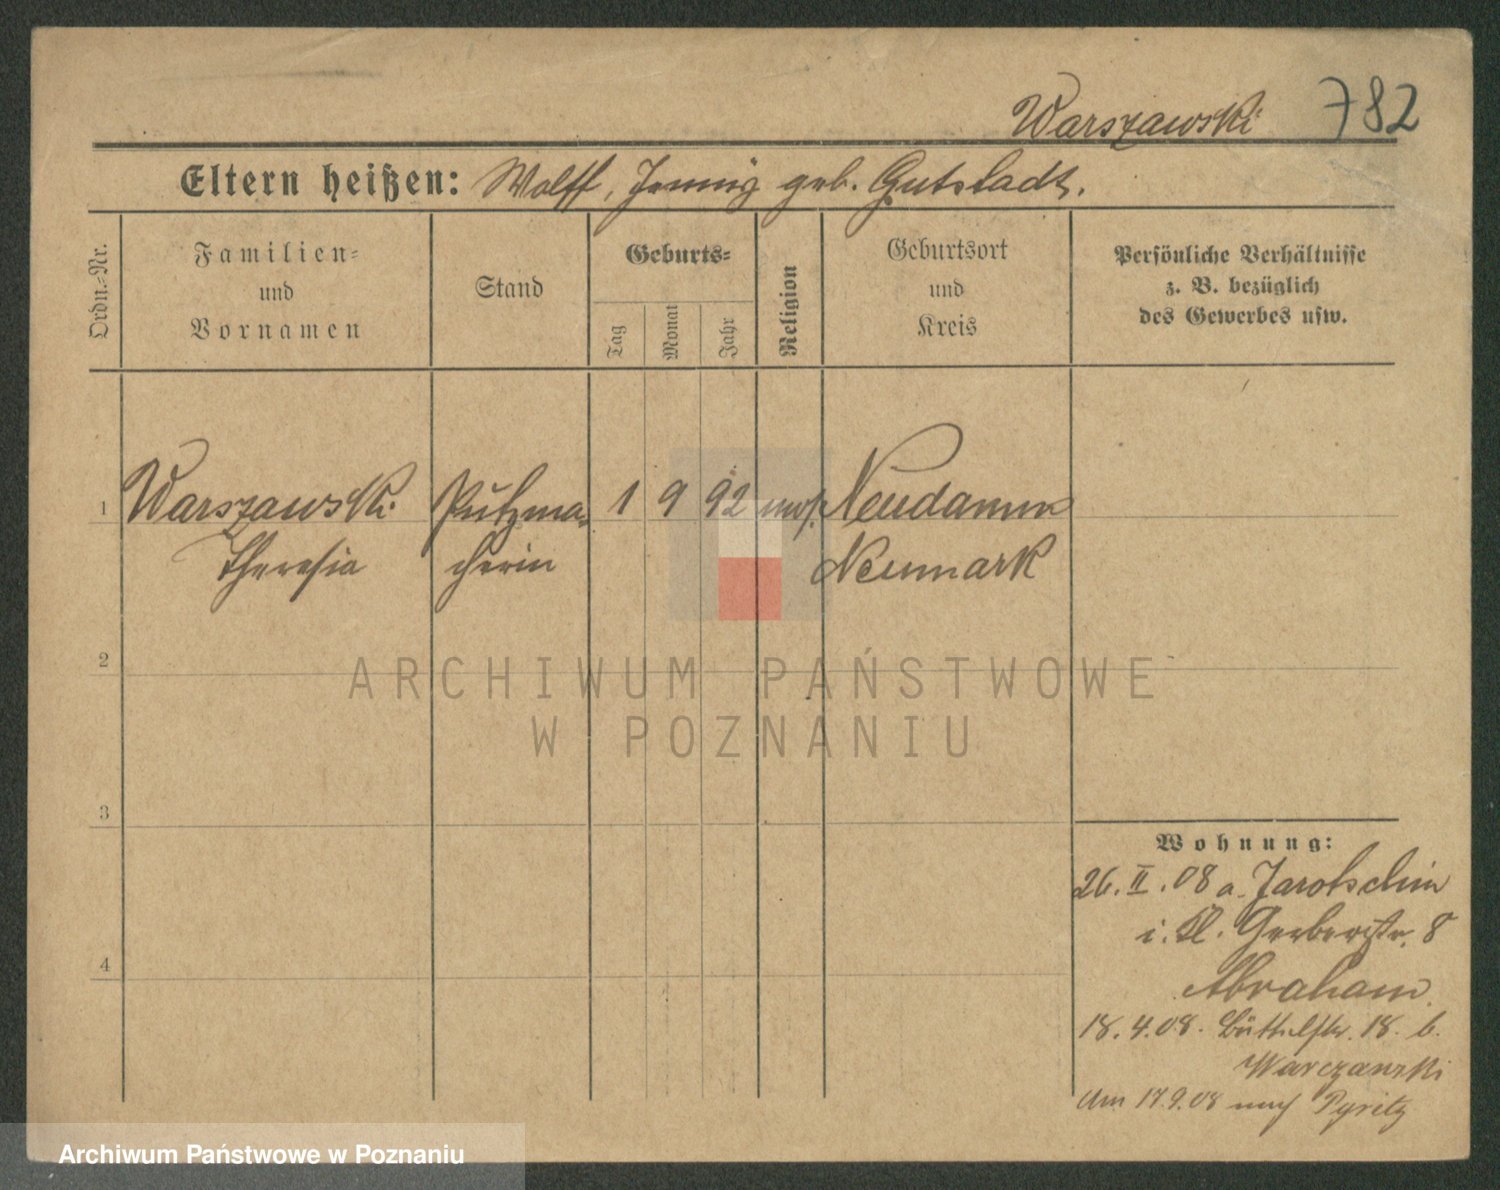 Warszawski 782
Eltern heißen: Wolff, Jenny geb. Gutstadt.
Ordn.-Nr.
Familien-
und
Vornamen
Stand
Geburts-
Tag
Monat
Jahr
Religion
Geburtsort
und
Kreis
Persönliche Verhältnisse
z. B. bezüglich
des Gewerbes usw.
1 Warszawski Putzma- 1 9 92 mos. Neudamm
Theresia cherin Neumark
2
3
4
Wohnung:
26. II. 08 a. Jarotschin
i. Kl. Gerberstr. 8
Abraham
18. 4. 08. Büttelstr. 18. b.
Warczawski
Am 17.9.08 nach Pyritz
ARCHIWUM PAŃSTWOWE
W POZNANIU
Archiwum Państwowe w Poznaniu